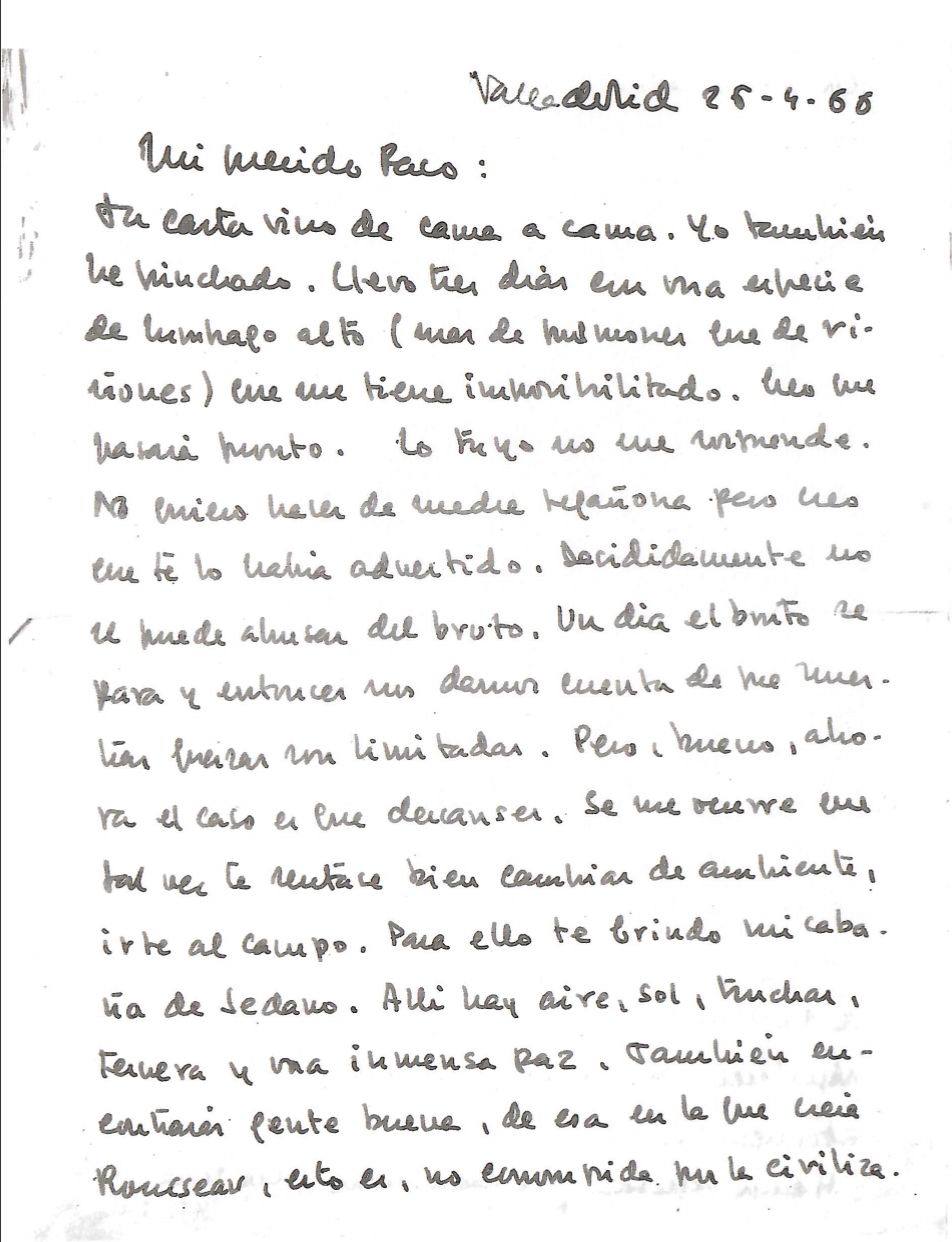 Valladolid 25-4-66
Mi querido Paco:
Tu carta vino de cama a cama. Yo también
he pinchado. Llevo tres días con una especie
de lumbago alto (mas de pulmones que de ri-
ñones) que me tiene imposibilitado. Creo que
pasará pronto. Lo tuyo no me sorprende.
No quiero hacer de madre regañona pero creo
que te lo había advertido. Decididamente no
se puede abusar del bruto. Un dia el bruto se
para y entonces nos damos cuenta de que nues-
tras fuerzas son limitadas. Pero, bueno, aho-
ra el caso es que descanses. Se me ocurre que
tal vez te sentase bien cambiar de ambiente,
irte al campo. Para ello te brindo mi caba-
ña de Sedano. Alli hay aire, sol, truchas,
ternera y una inmensa paz. También en-
contrarás gente buena, de esa en la que creía
Rousseau, esto es, no corrompida por la civiliza-